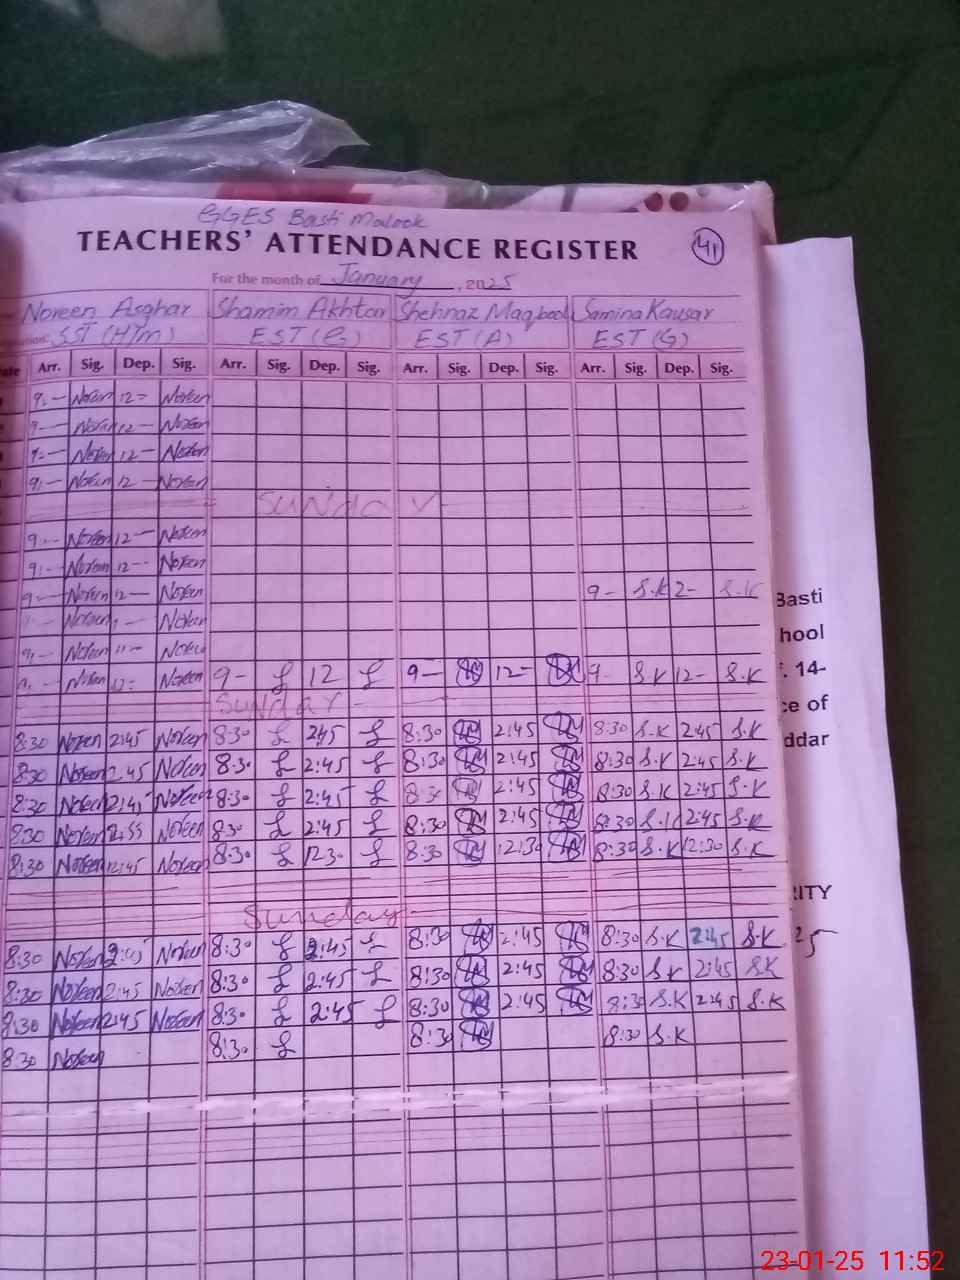 GGES Basti Malook
TEACHERS' ATTENDANCE REGISTER 41
For the month of January, 2025
Noreen Asghar Shamim Akhtar Shehnaz Maqbool Samina Kausar
SST (H/m) EST (G) EST (A) EST (G)
Arr. Sig. Dep. Sig. Arr. Sig. Dep. Sig. Arr. Sig. Dep. Sig. Arr. Sig. Dep. Sig.
9:- Noreen 12- Noreen
9-- Noreen 12- Noreen
9:- Noreen 12- Noreen
9:- Noreen 12- Noreen
Sunday
9-- Noreen 12- Noreen
9:- Noreen 12-- Noreen
9-- Noreen 12- Noreen 9- S.K 2- S.K
Noreen Noreen
9:- Noreen Noreen
Noreen 12- Noreen 9- 12 9- 12- 9- S.K 12- S.K
Sunday
8:30 Noreen 2:45 Noreen 8:30 2:45 8:30 2:45 8:30 S.K 2:45 S.K
8:30 Noreen 2:45 Noreen 8:30 2:45 8:30 2:45 8:30 S.K 2:45 S.K
8:30 Noreen 2:45 Noreen 8:30 2:45 8:30 2:45 8:30 S.K 2:45 S.K
8:30 Noreen Noreen 8:30 2:45 8:30 2:45 8:30 S.K 2:45 S.K
8:30 Noreen 12:45 Noreen 8:30 12:30 8:30 12:30 8:30 S.K 12:30 S.K
Sunday
8:30 Noreen 2:45 Noreen 8:30 2:45 8:30 2:45 8:30 S.K 2:45 S.K
8:30 Noreen 2:45 Noreen 8:30 2:45 8:30 2:45 8:30 S.K 2:45 S.K
8:30 Noreen 2:45 Noreen 8:30 2:45 8:30 2:45 8:30 S.K 2:45 S.K
8:30 Noreen 8:30 8:30 8:30 S.K
Basti
hool
14-
ce of
ddar
RITY
23-01-25 11:52